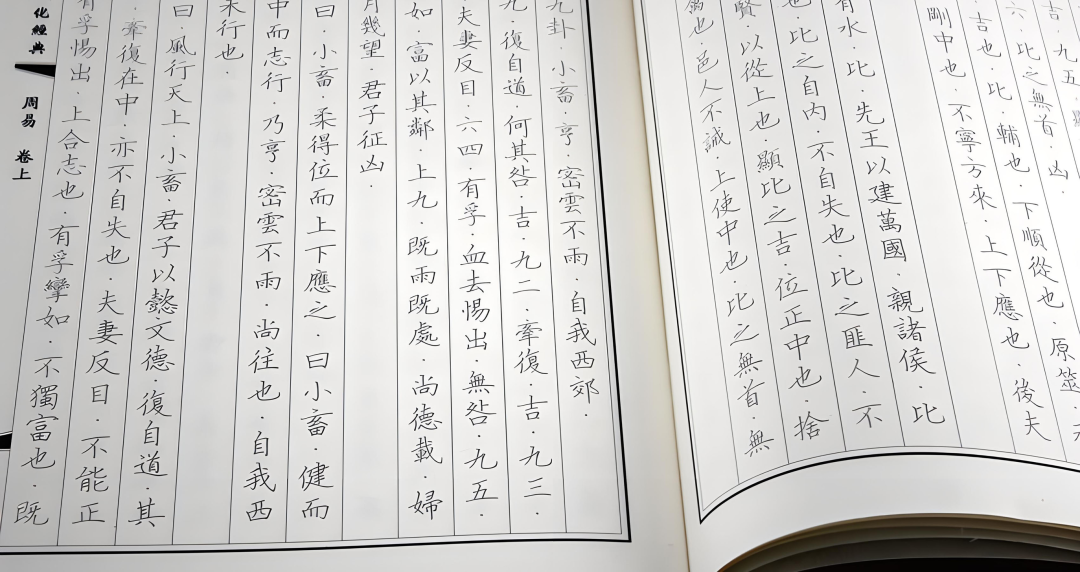 吉．九五．
六．比之無首．凶．
吉也．比．輔也．下順從也．原筮．
剛中也．不寧方來．上下應也．後夫
有水．比．先王以建萬國．親諸侯．比
也．比之自內．不自失也．比之匪人．不
賢．以從上也．顯比之吉．位正中也．捨
禽也．邑人不誡．上使中也．比之無首．無
九卦．小畜．亨．密雲不雨．自我西郊．
九．復自道．何其咎．吉．九二．牽復．吉．九三．
夫妻反目．六四．有孚．血去惕出．無咎．九五．
如．富以其鄰．上九．既雨既處．尚德載．婦
月幾望．君子征凶．
曰．小畜．柔得位而上下應之．曰小畜．健而
中而志行．乃亨．密雲不雨．尚往也．自我西
未行也．
曰．風行天上．小畜．君子以懿文德．復自道．其
牽復在中．亦不自失也．夫妻反目．不能正
有孚惕出．上合志也．有孚攣如．不獨富也．既
化經典
周易 卷上